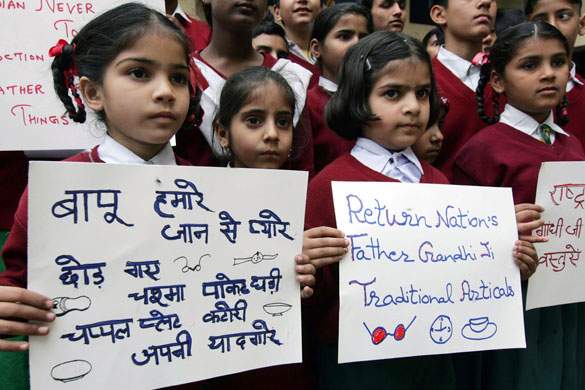 DIAN NEVER
TO
DUCTION
ATHER
RED
THINGS
बापू हमारे
जान से प्यारे
छोड़ गए
चश्मा पॉकेट घड़ी
चप्पल प्लेट कटोरी
अपनी यादगारे
Return Nation's
Father Gandhi Ji
Traditional Articals
राष्ट्र
गांधी जी
वस्तु से